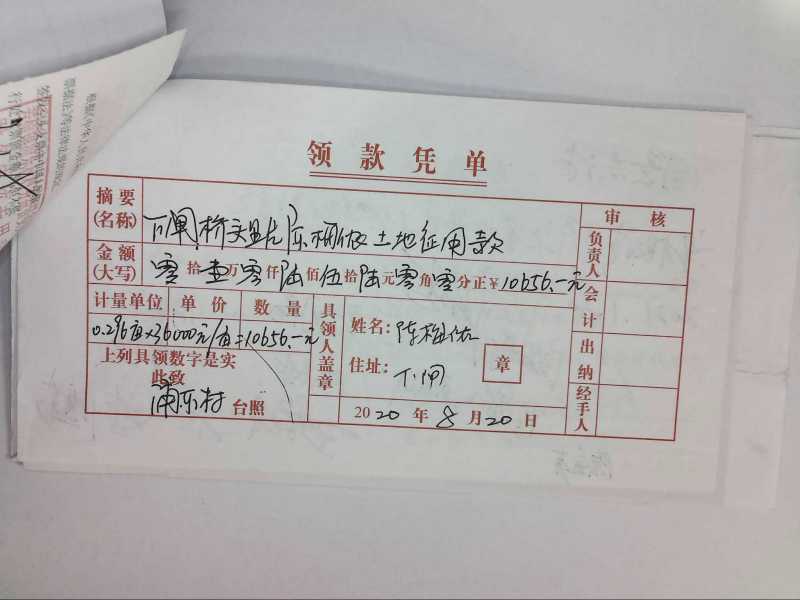 领款凭单
摘要(名称) 下闸桥头 陈 土地征用款
审核
金额(大写) 零拾壹万零仟陆佰伍拾陆元零角零分正¥10656.-元
负责人
计量单位 单价 数量
会计
0.296亩×36000元/亩=10656.-元
具领人盖章
姓名:陈 佑
住址:下闸
章
出纳
上列具领数字是实
此致
浦东村 台照
2020年8月20日
经手人